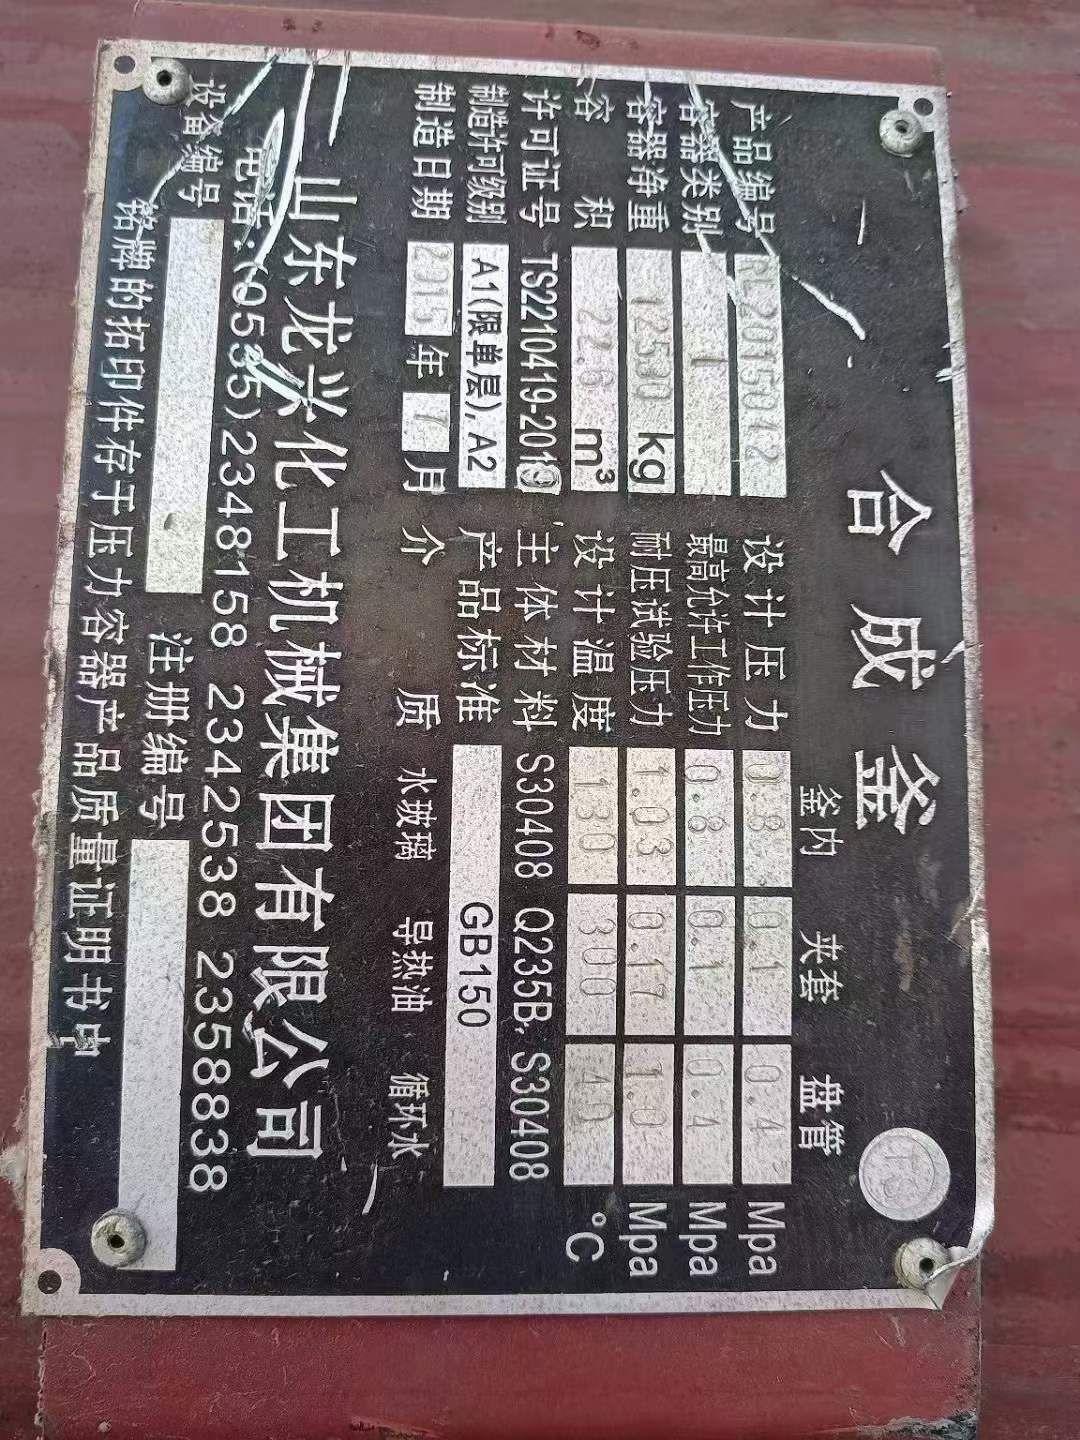 合成釜
TS
釜内 夹套 盘管
产品编号 RL2015042 设计压力 0.8 0.1 0.4 Mpa
容器类别 1 最高允许工作压力 0.8 0.1 0.4 Mpa
容器净重 12580 kg 耐压试验压力 1.03 0.17 1.0 Mpa
容积 22.6 m³ 设计温度 130 300 40 °C
许可证号 TS2210419-2018 主体材料 S30408 Q235B, S30408
制造许可级别 A1(限单层), A2 产品标准 GB150
制造日期 2015年7月 介质 水玻璃 导热油 循环水
山东龙兴化工机械集团有限公司
电话:(0535)2348158 2342538 2358838
设备编号 注册编号
铭牌的拓印件存于压力容器产品质量证明书中